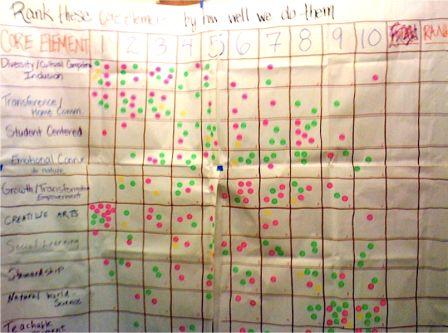 Rank these core elements by how well we do them
CORE ELEMENT 1 2 3 4 5 6 7 8 9 10 RANK
Diversity/Cultural Competency
Inclusion
Transference/
Home Comm.
Student Centered
Emotional Conn.
to nature
Growth/Transformation
Empowerment
CREATIVE ARTS
Social Learning
Stewardship
Natural World -
Science
Teachable